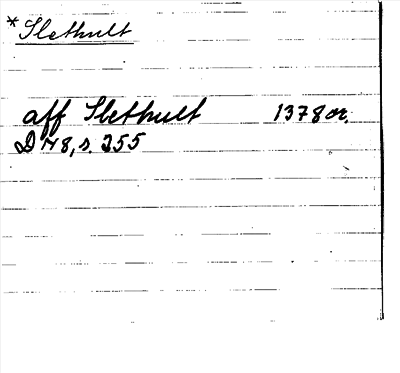 *Slethult
aff Slethult 1378 or.
D 48, s. 255